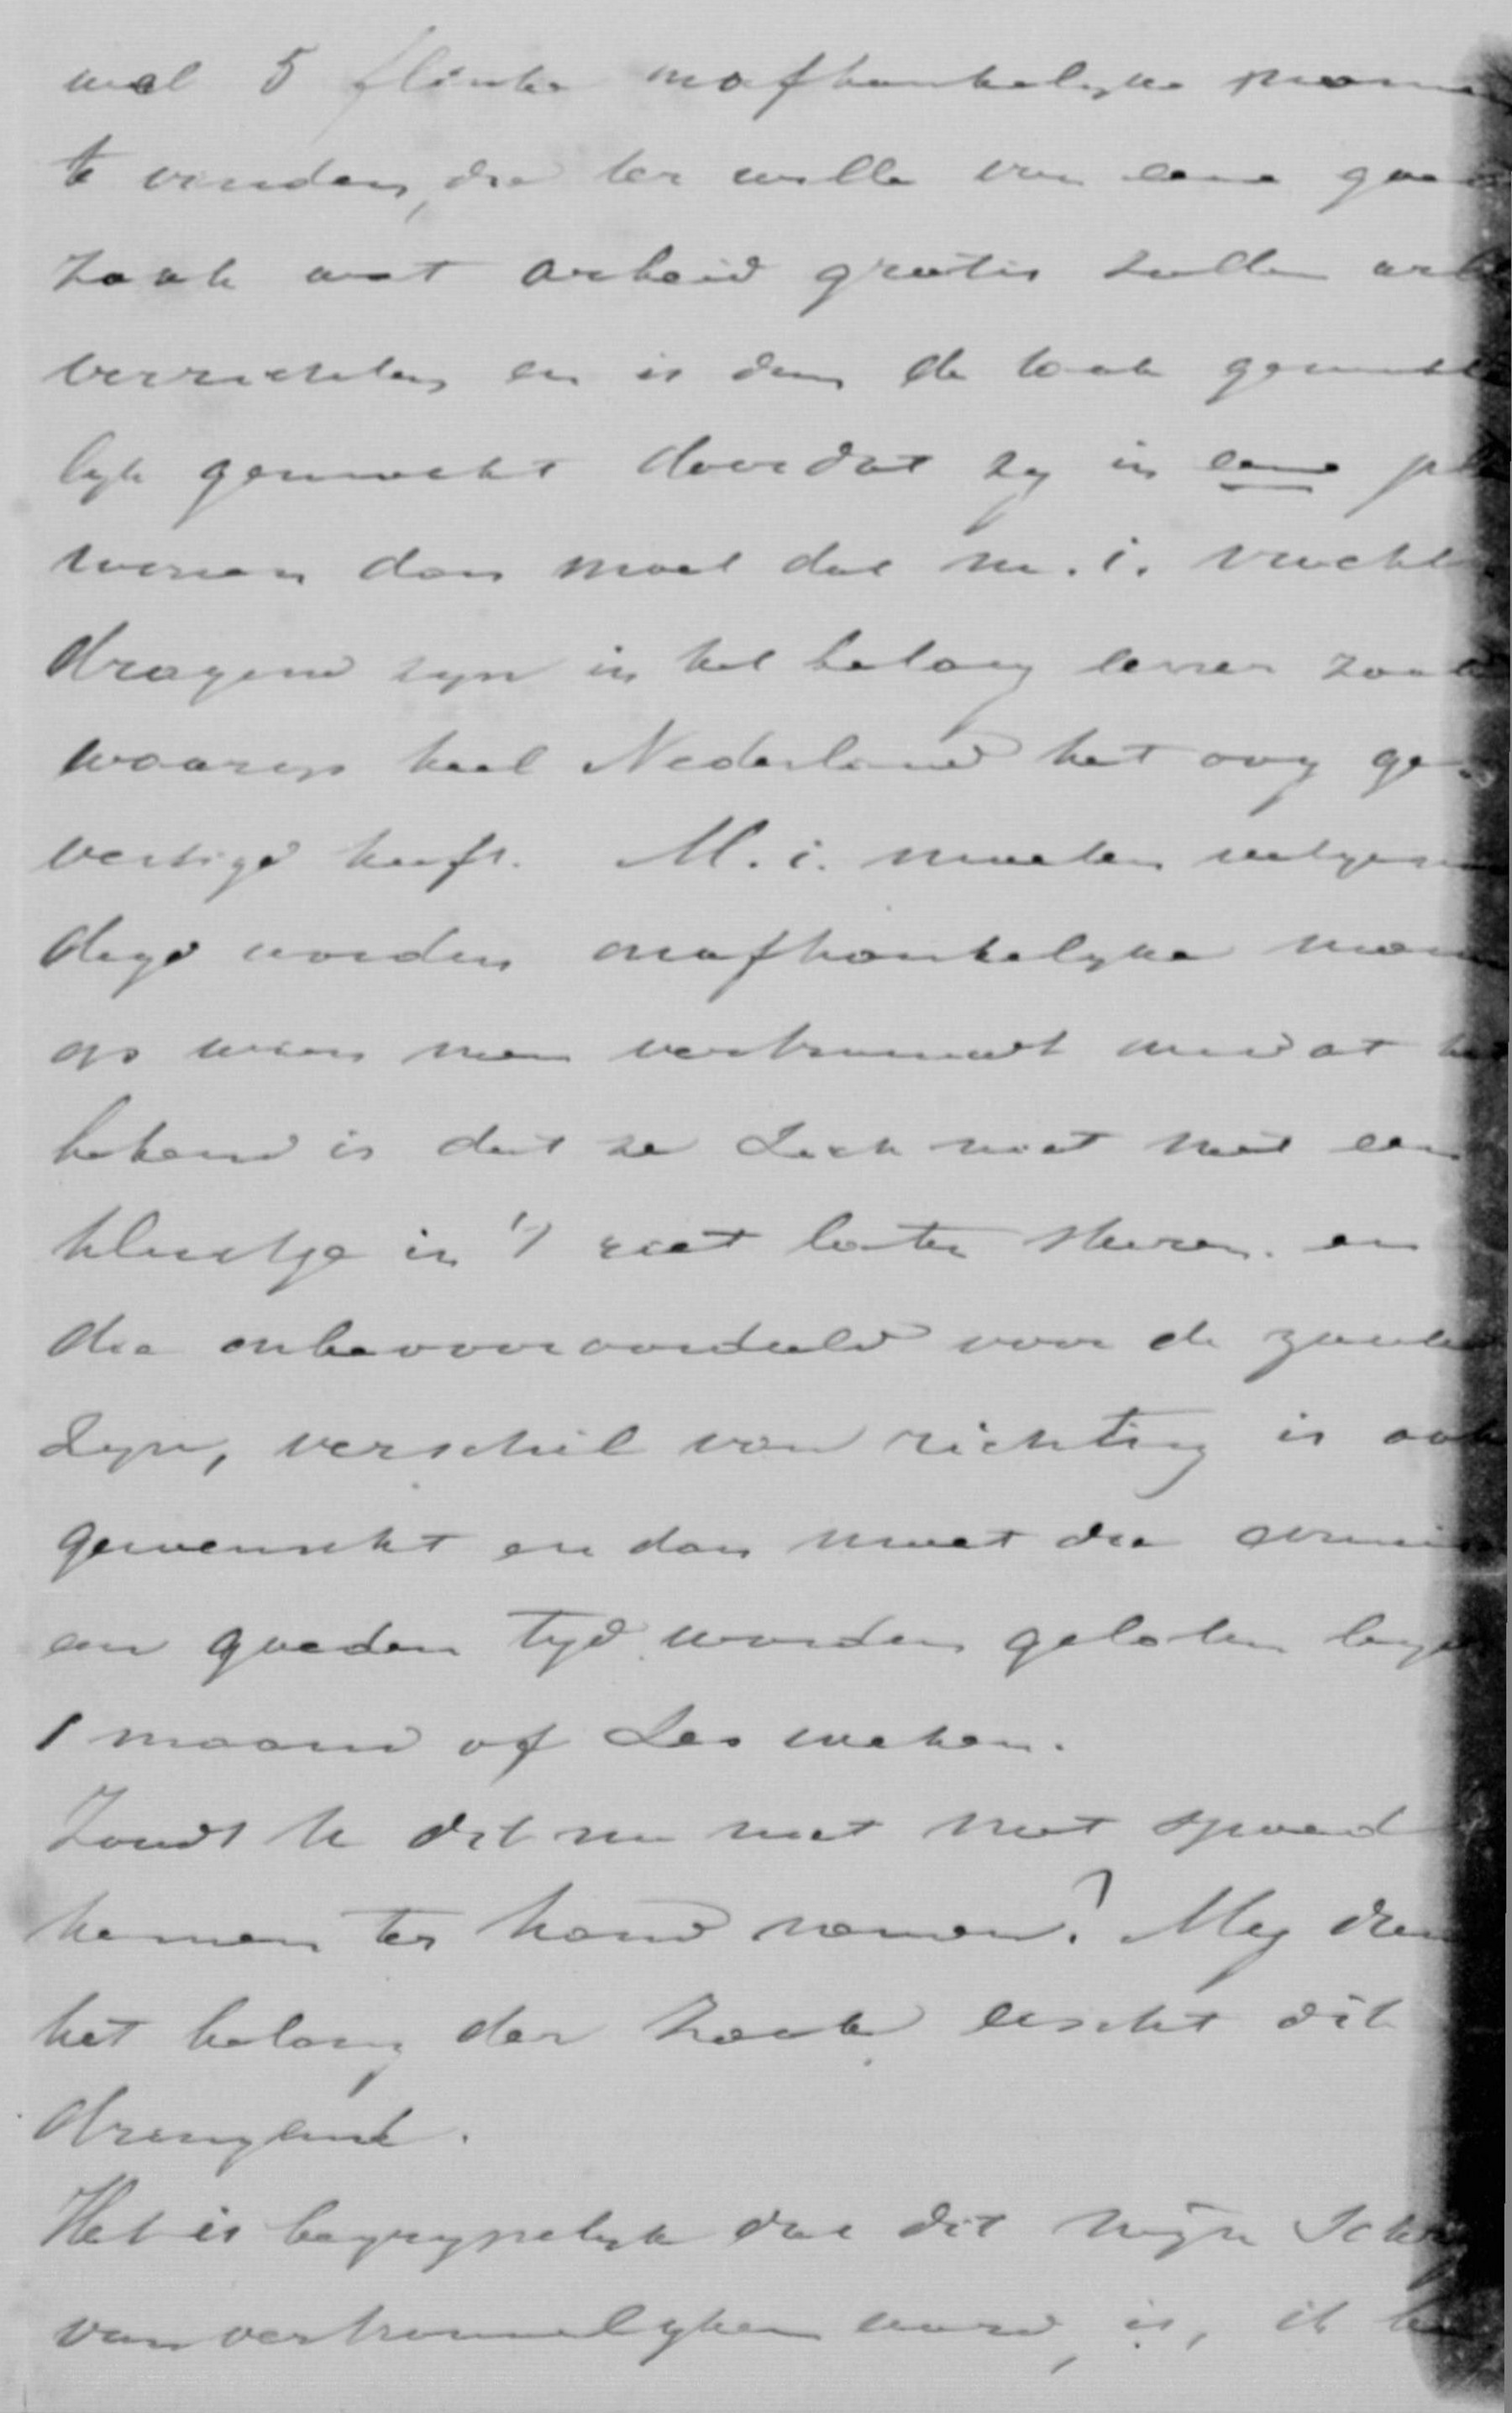 wel 5 flinke onafhankelyke
te vinden, die ter wille van eene
zaak wat arbeid gratis zullen
verrichten en is dan de taak
lyk gemaakt doordat zy in eene
wonen dan moet dat m. i. vrucht
dragend zyn in het belang eener zaak
waarop heel Nederland het oog ge-
vestigd heeft. M. i. moeten
digd worden onafhankelyke
op wien men vertrouwt omdat
bekend is dat ze zich niet met een
kluitje in 't riet laten sturen. en
die onbevooroordeeld voor de
zyn, verschil van richting is ook
gewenscht en dan moet die
een goeden tyd worden gelaten
1 maand of zes weken.
Zoudt U dit nu niet met spoed
kunnen ter hand nemen? My
het belang der zaak eischt dit
dringend.
Het is begrypelyk dat dit mijn
van vertrouwelyken aard, is, ik